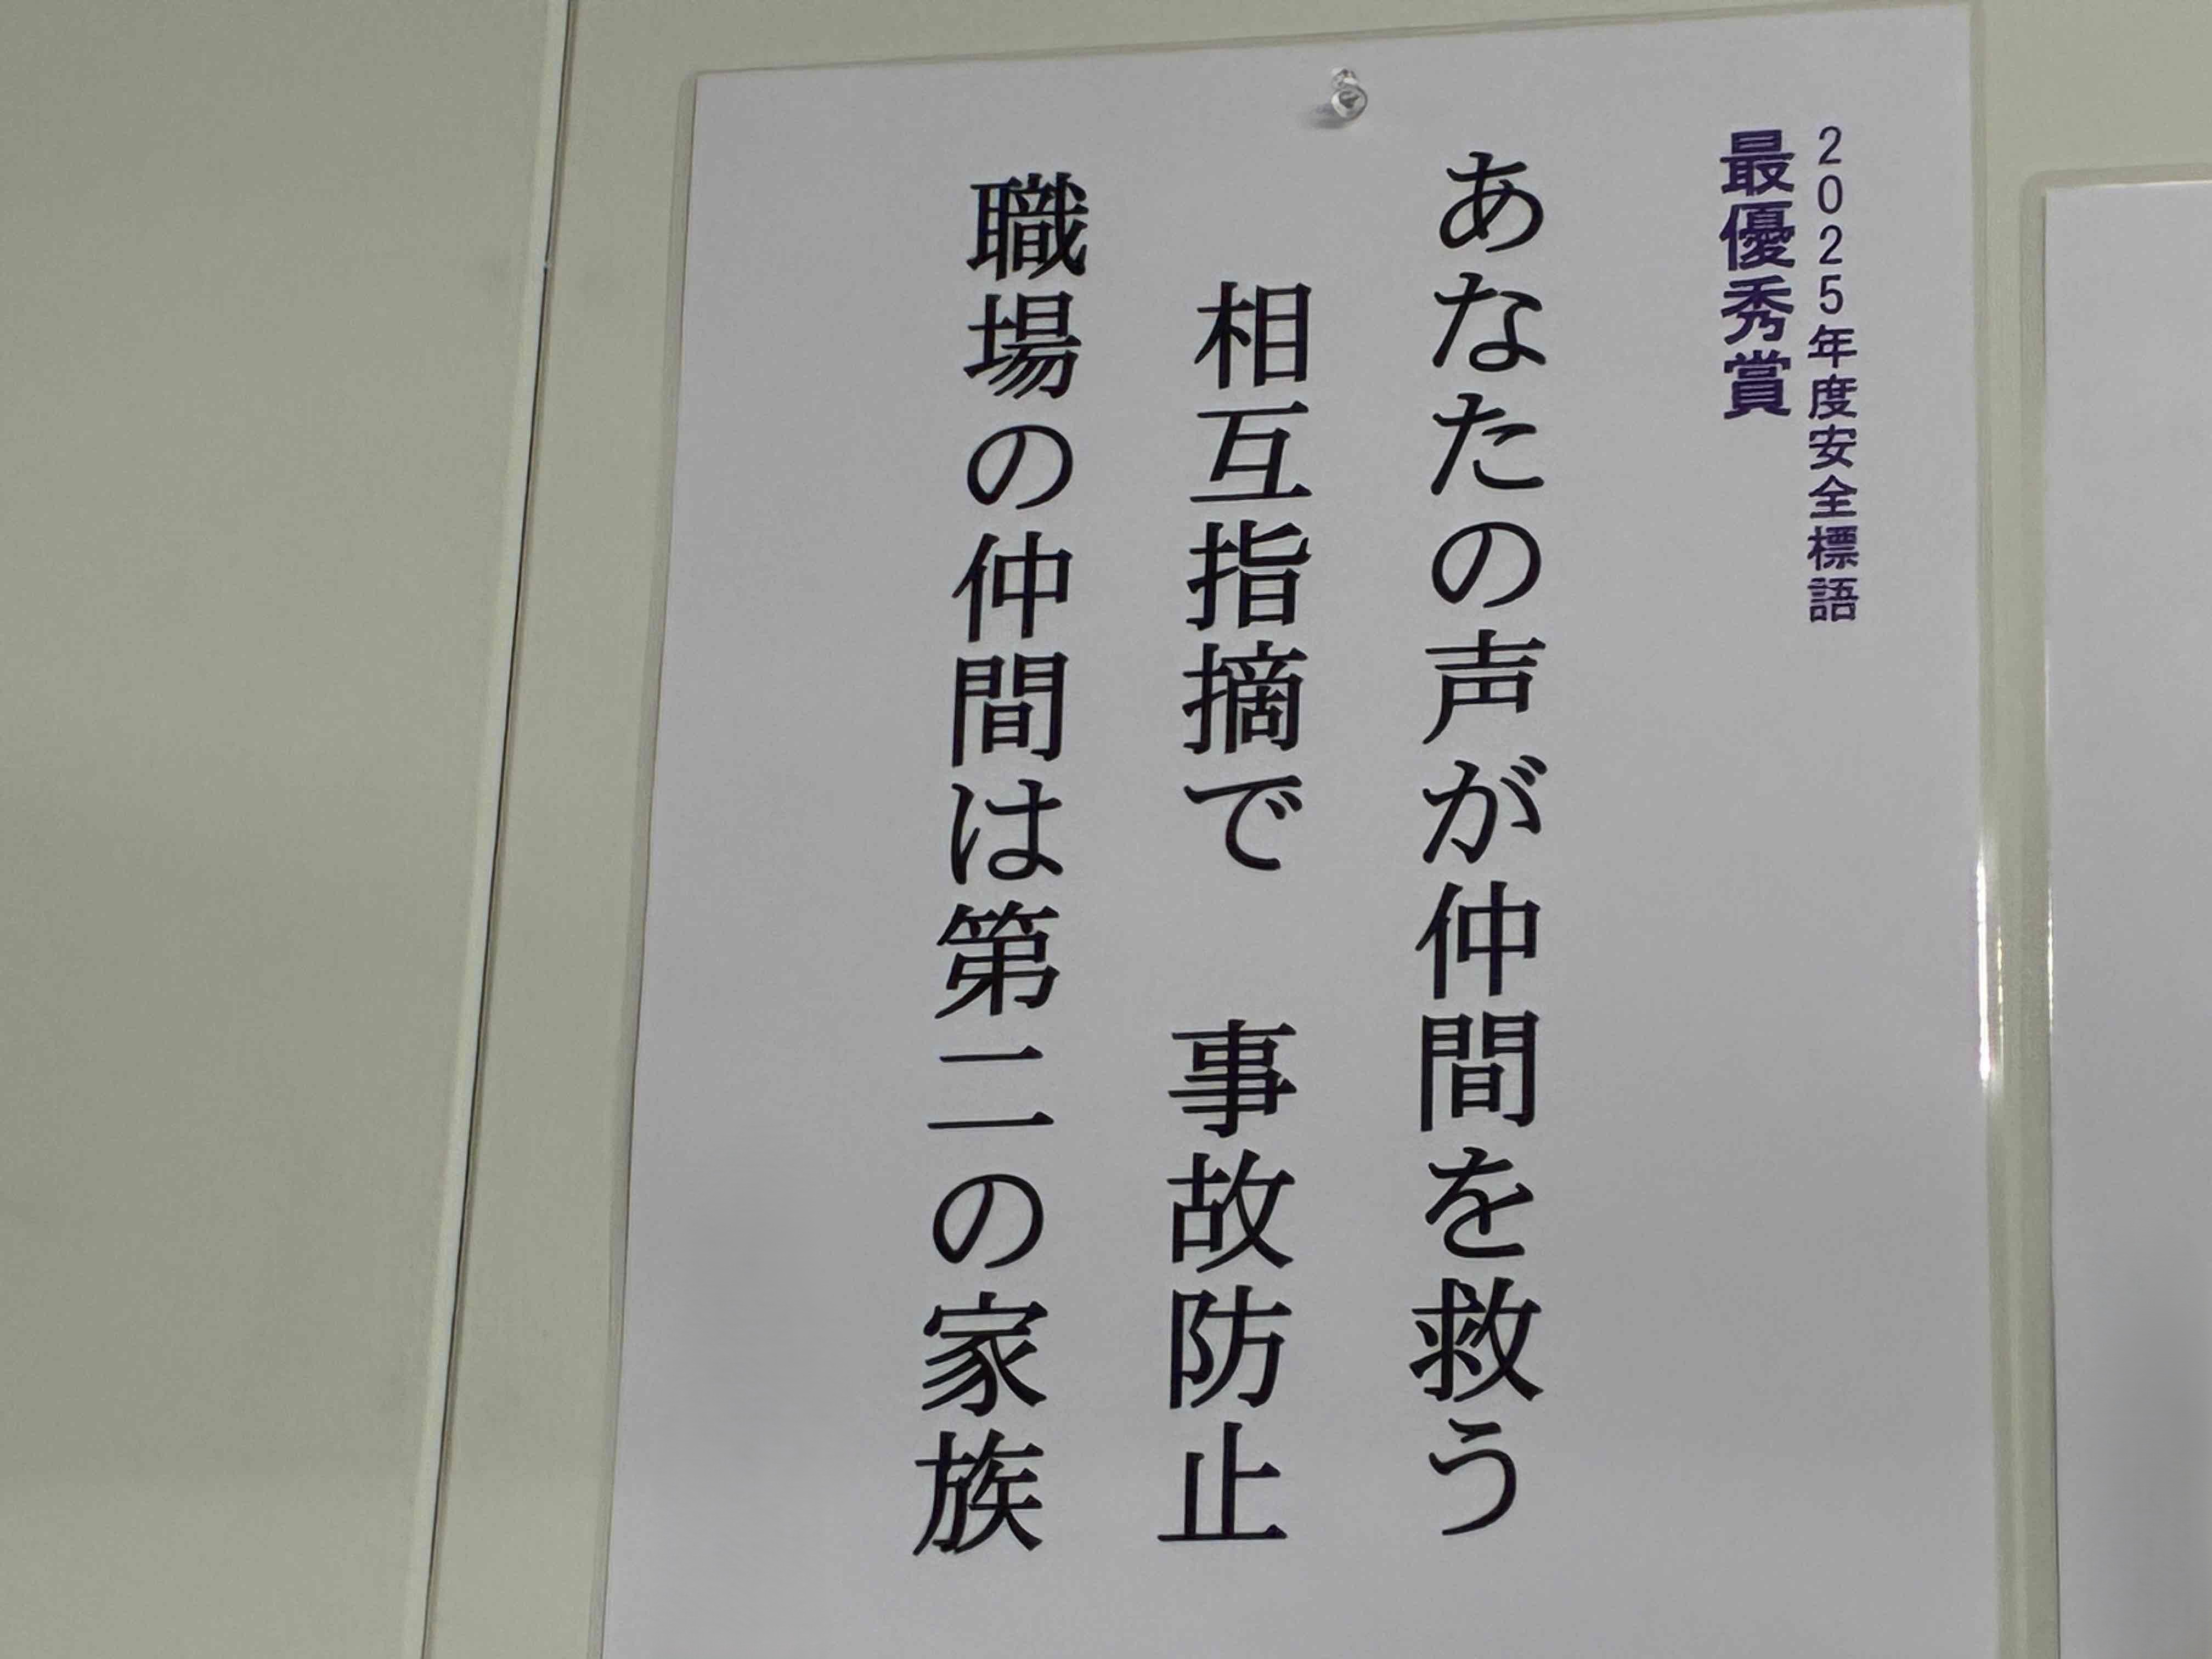 2025年度安全標語
最優秀賞
あなたの声が仲間を救う
相互指摘で　事故防止
職場の仲間は第二の家族